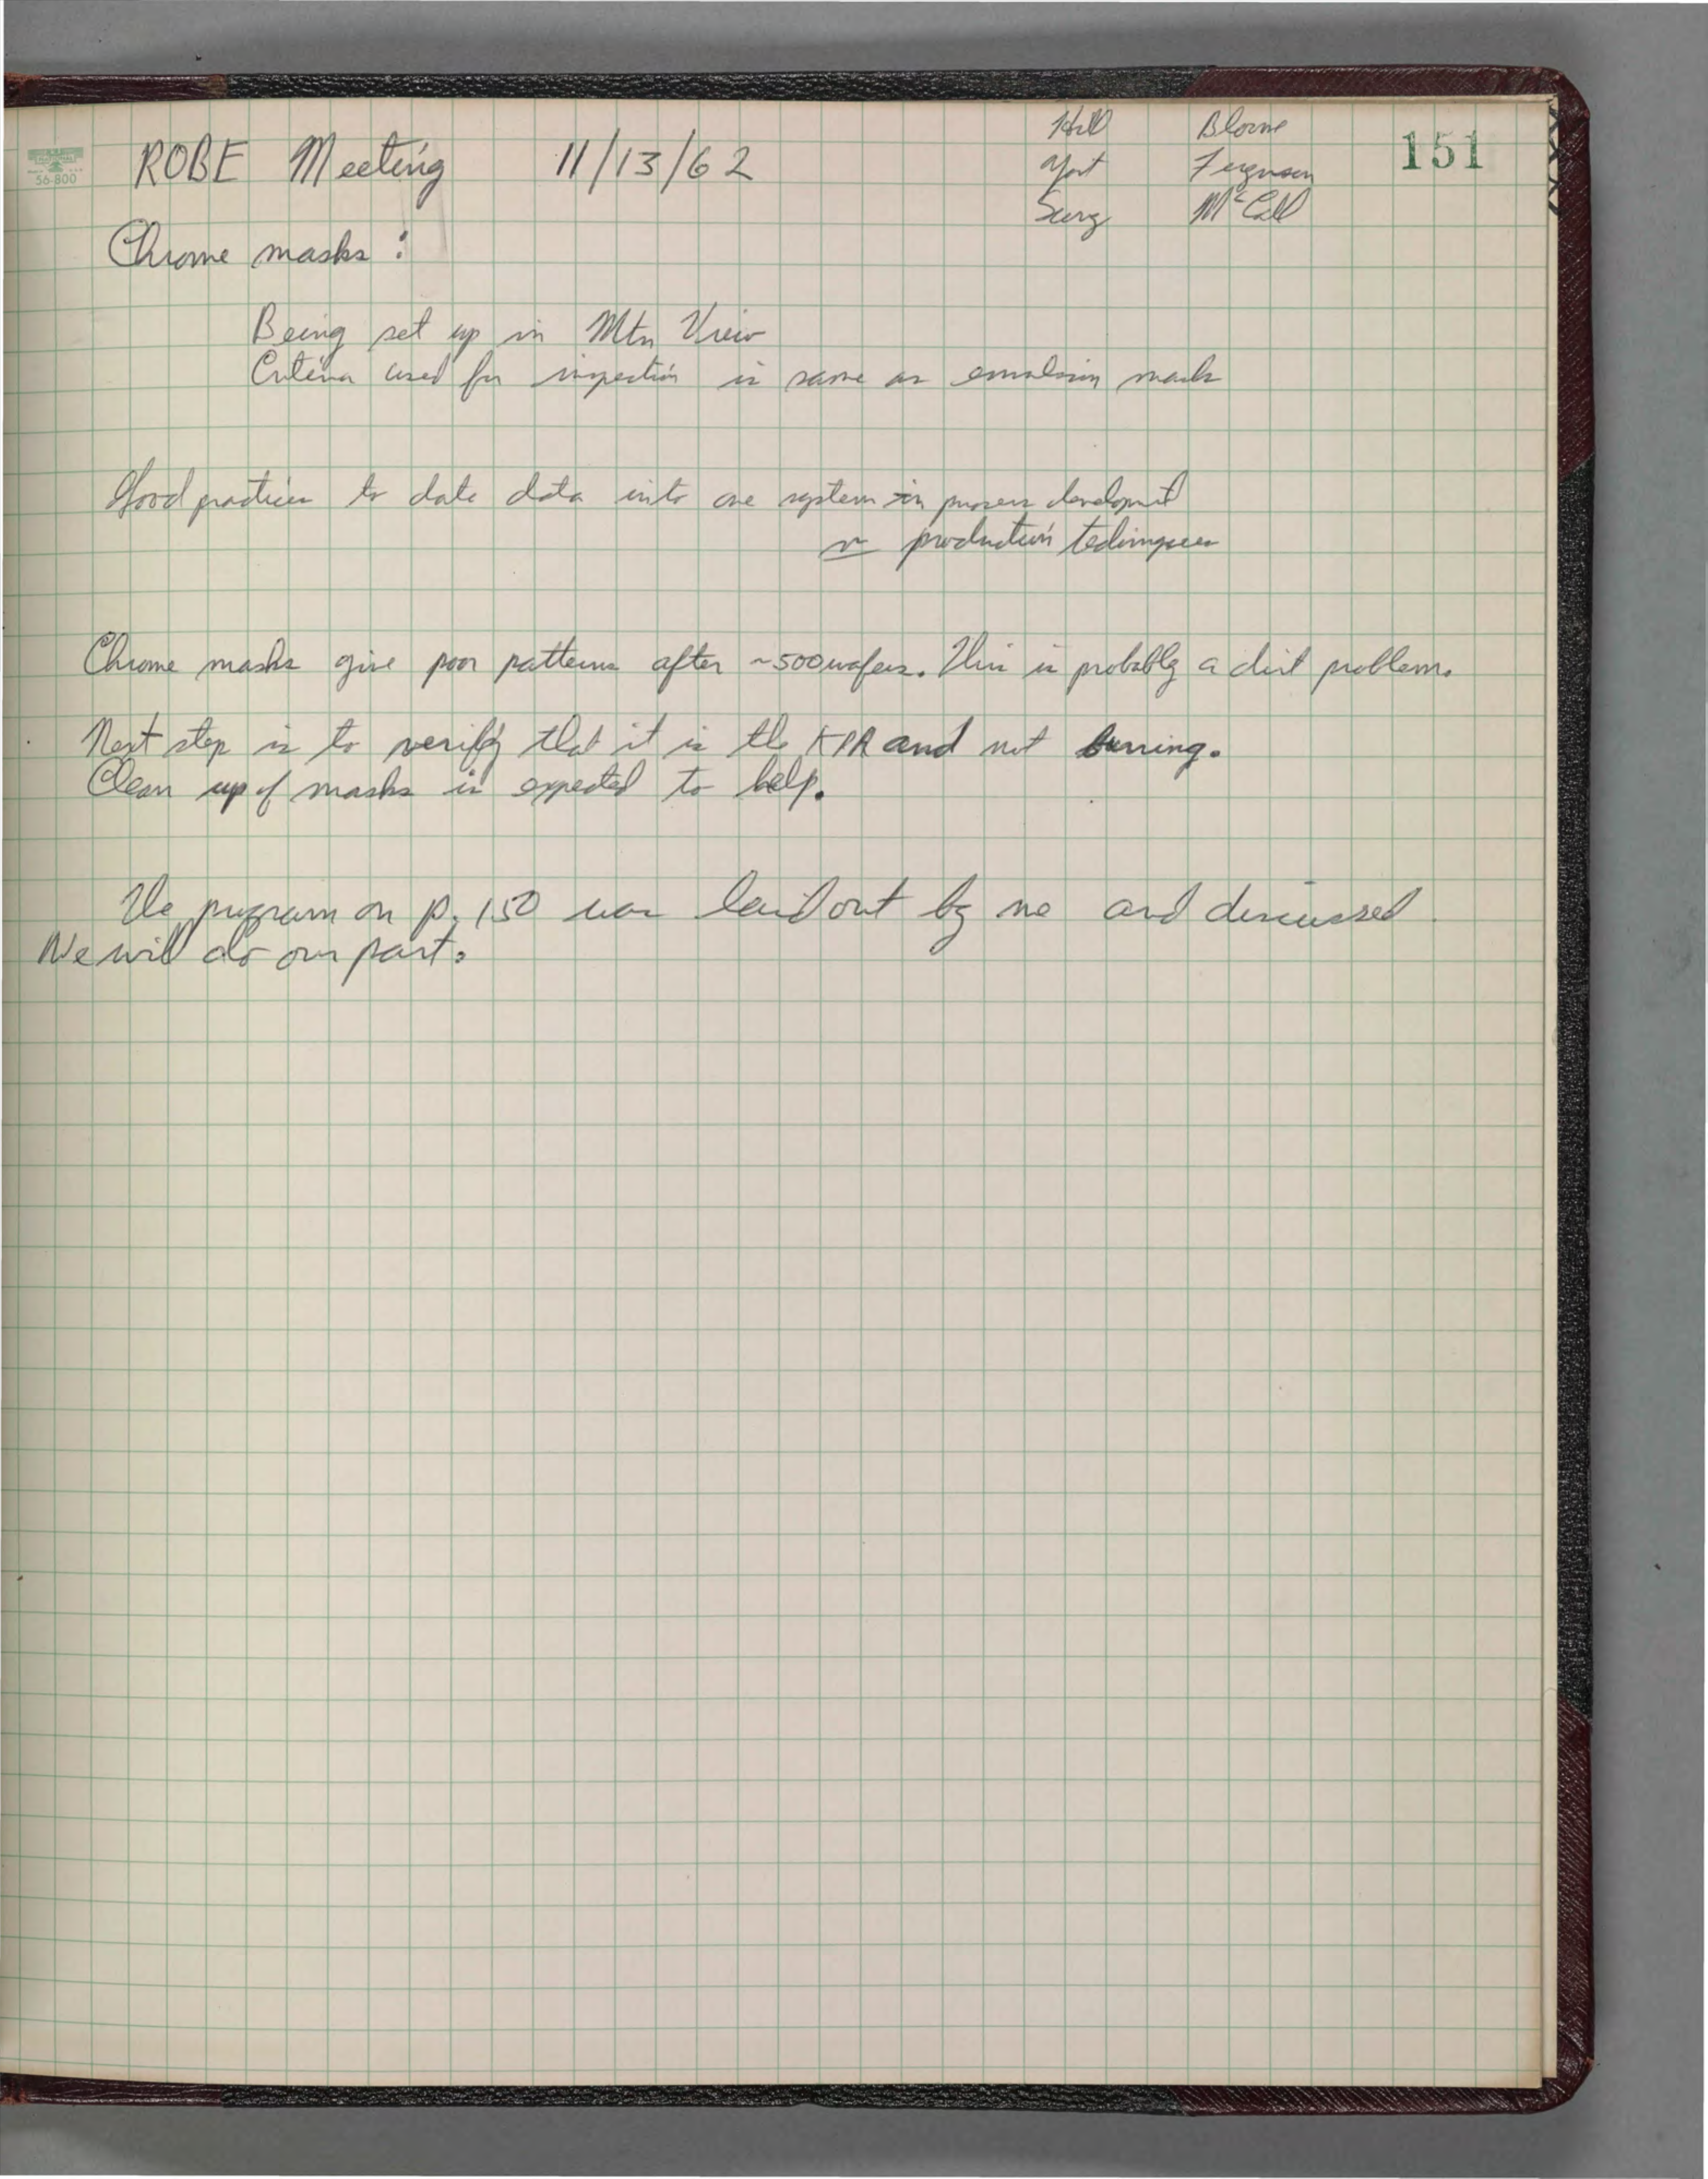 ROBE Meeting 11/13/62
Hill Blome
Yost Ferguson
Seeng McCall
151
56-800
Chrome masks:
Being set up in Mtn View
Criteria used for inspection is same as emulsion mask
Good practices to date data into one system in process development
or production techniques
Chrome masks give poor patterns after ~500 wafers. This is probably a dirt problem.
Next step is to verify that it is the KPR and not burring.
Clean up of masks is expected to help.
The program on p. 150 was laid out by me and discussed
We will do our part.